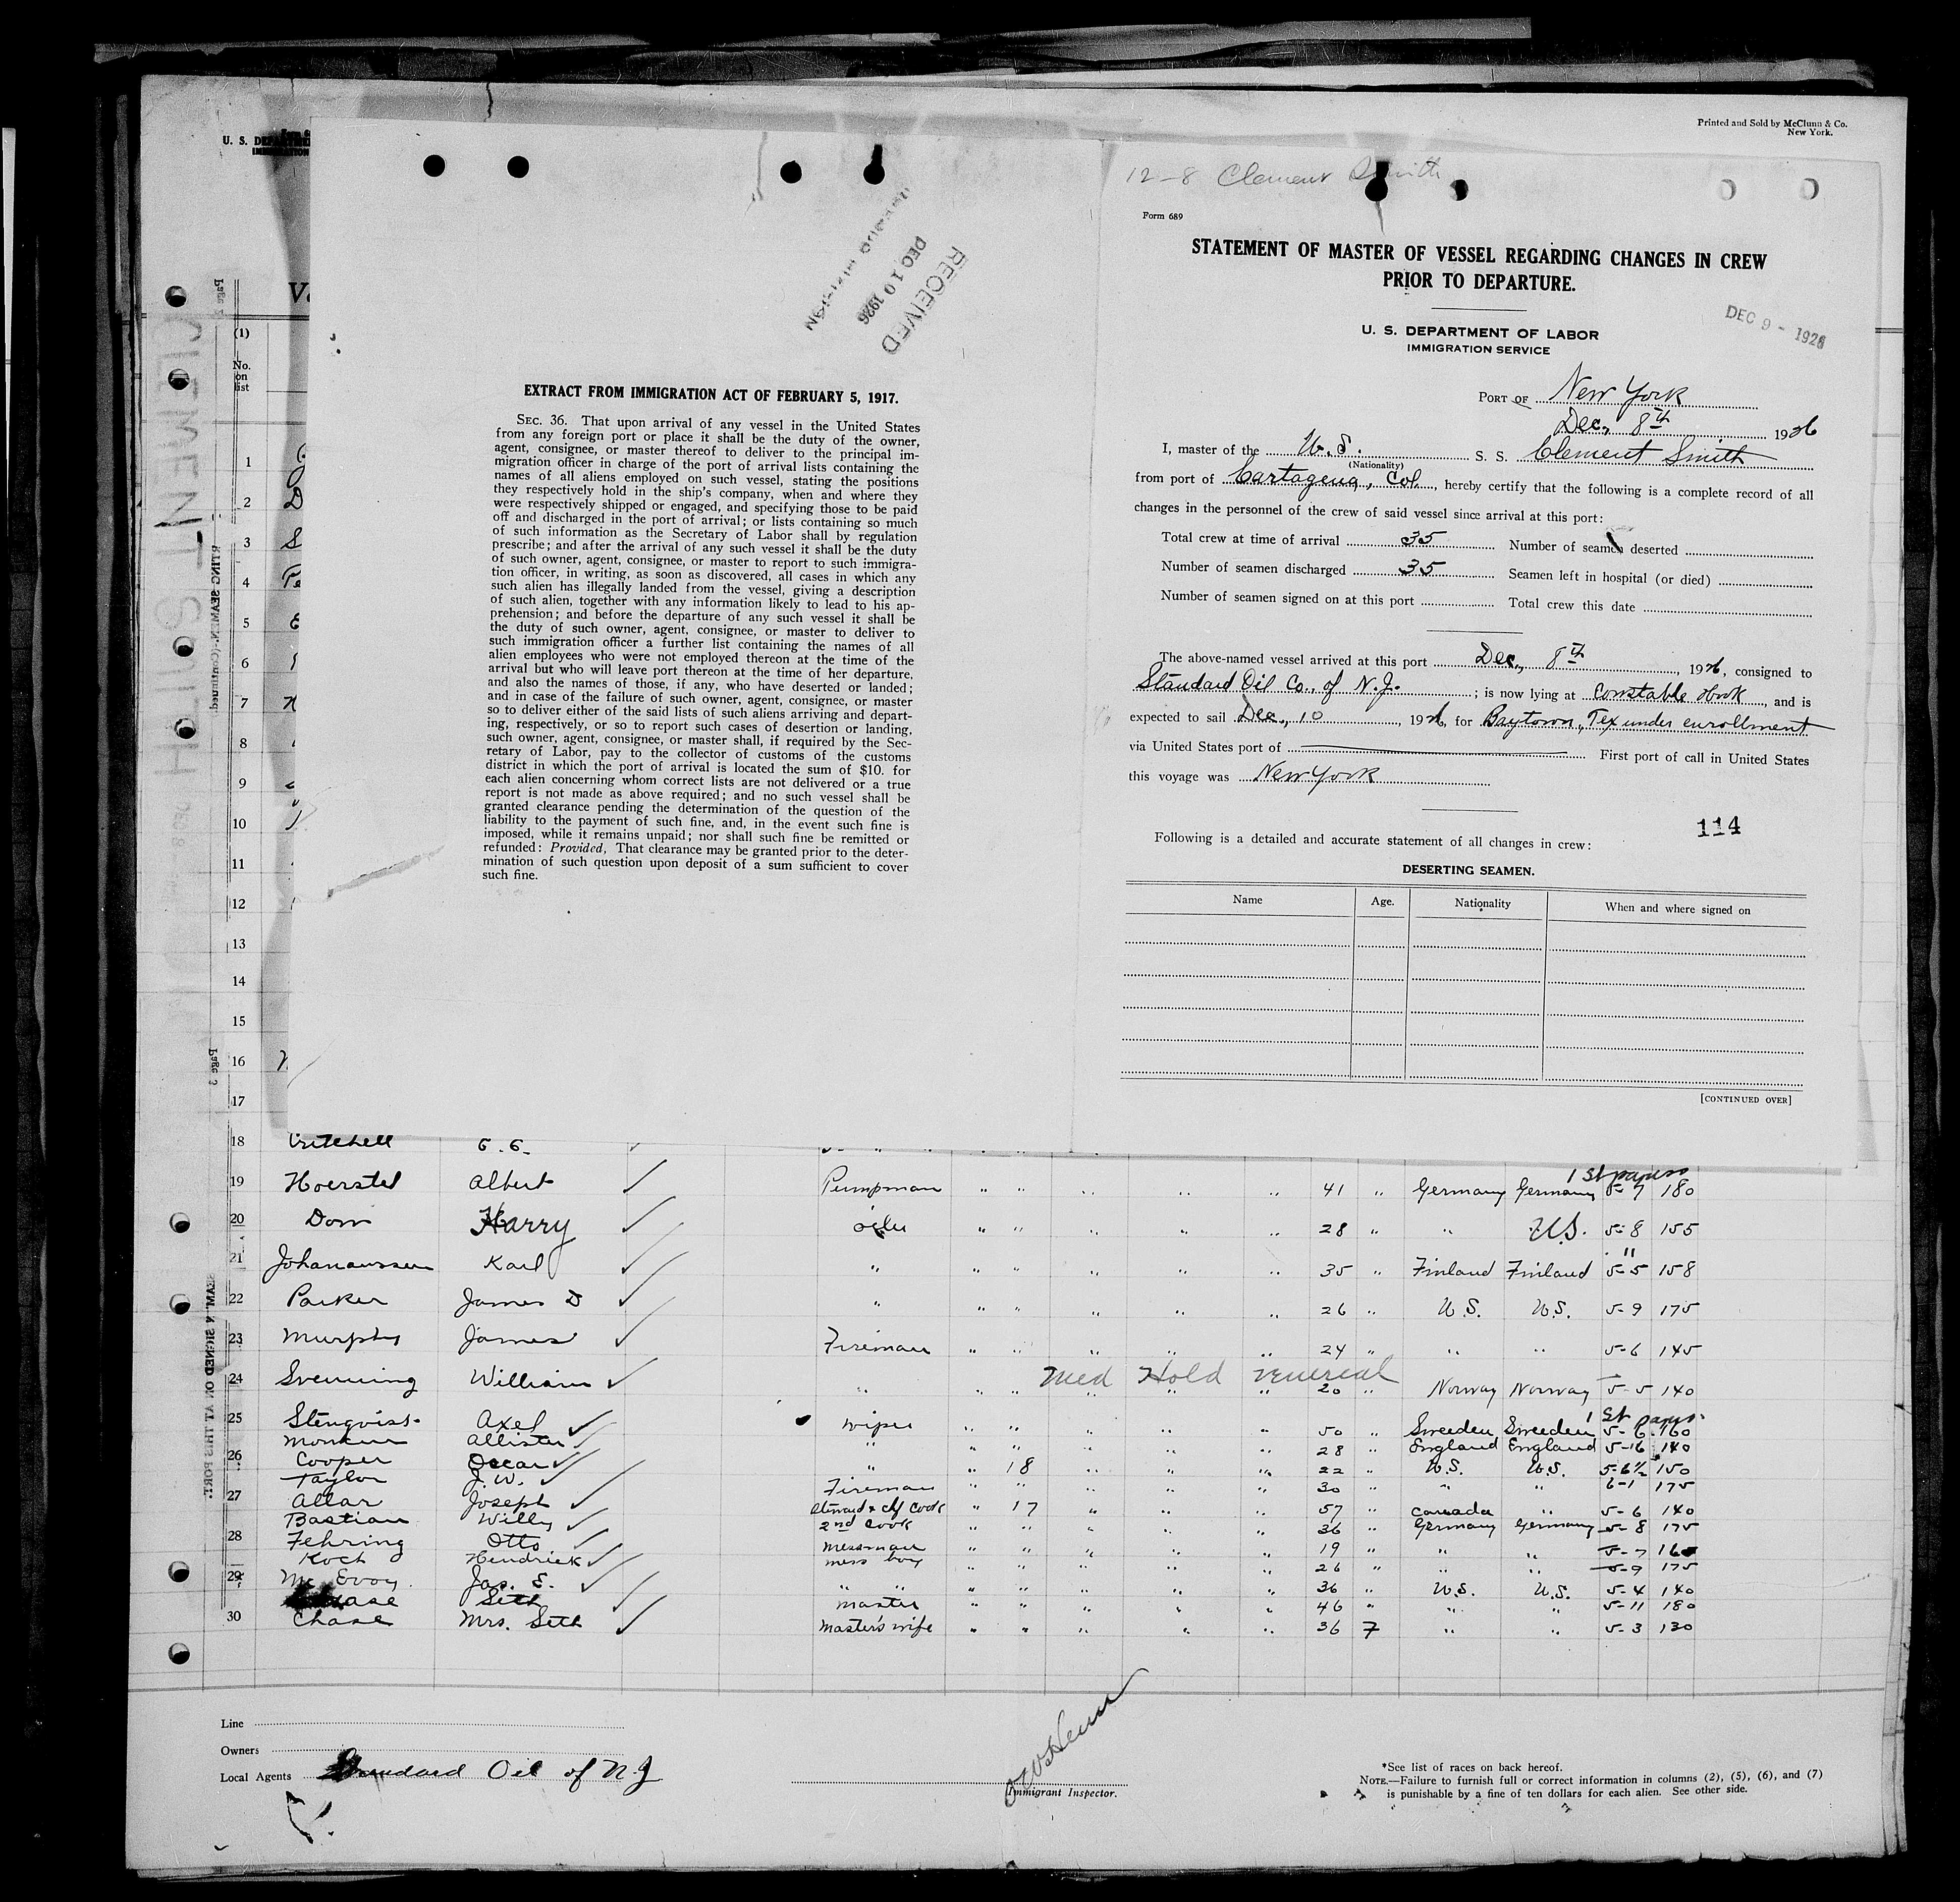 Printed and Sold by McClunn & Co.
New York.
U. S. DEPARTMENT
12-8 Clement Smith
Form 689
STATEMENT OF MASTER OF VESSEL REGARDING CHANGES IN CREW
PRIOR TO DEPARTURE.
U. S. DEPARTMENT OF LABOR
IMMIGRATION SERVICE
DEC 9 - 1926
PORT OF New York
Dec, 8th 1926
I, master of the U. S. S. S. Clement Smith
(Nationality)
from port of Cartagena, Col., hereby certify that the following is a complete record of all
changes in the personnel of the crew of said vessel since arrival at this port:
Total crew at time of arrival 35 Number of seamen deserted
Number of seamen discharged 35 Seamen left in hospital (or died)
Number of seamen signed on at this port Total crew this date
The above-named vessel arrived at this port Dec, 8th, 1926, consigned to
Standard Oil Co., of N.J. ; is now lying at Constable Hook, and is
expected to sail Dec, 10, 1926, for Baytown, Tex under enrollment
via United States port of First port of call in United States
this voyage was New York
114
Following is a detailed and accurate statement of all changes in crew:
DESERTING SEAMEN.
Name Age. Nationality When and where signed on
[CONTINUED OVER]
RECEIVED
DEC 10 1926
EXTRACT FROM IMMIGRATION ACT OF FEBRUARY 5, 1917.
SEC. 36. That upon arrival of any vessel in the United States
from any foreign port or place it shall be the duty of the owner,
agent, consignee, or master thereof to deliver to the principal im-
migration officer in charge of the port of arrival lists containing the
names of all aliens employed on such vessel, stating the positions
they respectively hold in the ship's company, when and where they
were respectively shipped or engaged, and specifying those to be paid
off and discharged in the port of arrival; or lists containing so much
of such information as the Secretary of Labor shall by regulation
prescribe; and after the arrival of any such vessel it shall be the duty
of such owner, agent, consignee, or master to report to such immigra-
tion officer, in writing, as soon as discovered, all cases in which any
such alien has illegally landed from the vessel, giving a description
of such alien, together with any information likely to lead to his ap-
prehension; and before the departure of any such vessel it shall be
the duty of such owner, agent, consignee, or master to deliver to
such immigration officer a further list containing the names of all
alien employees who were not employed thereon at the time of the
arrival but who will leave port thereon at the time of her departure,
and also the names of those, if any, who have deserted or landed;
and in case of the failure of such owner, agent, consignee, or master
so to deliver either of the said lists of such aliens arriving and depart-
ing, respectively, or so to report such cases of desertion or landing,
such owner, agent, consignee, or master shall, if required by the Sec-
retary of Labor, pay to the collector of customs of the customs
district in which the port of arrival is located the sum of $10. for
each alien concerning whom correct lists are not delivered or a true
report is not made as above required; and no such vessel shall be
granted clearance pending the determination of the question of the
liability to the payment of such fine, and, in the event such fine is
imposed, while it remains unpaid; nor shall such fine be remitted or
refunded: Provided, That clearance may be granted prior to the deter-
mination of such question upon deposit of a sum sufficient to cover
such fine.
CLEMENT SMITH
(1)
No.
on
list
1
2
3
4
5
6
7
8
9
10
11
12
13
14
15
16
17
18 Critchell
19 Hoerstel Albert Pumpman " " " " " 41 " Germany Germany 5-7 180
20 Dorn Harry oiler " " " " " 28 " " U.S. 5-8 155
21 Johanaussen Karl " " " " " " 35 " Finland Finland 5-5 158
22 Parker James D " " " " " " 26 " U.S. U.S. 5-9 175
23 Murphy James Fireman " " " " " 24 " " " 5-6 145
Med Hold venereal
24 Svenning William " " " 20 " Norway Norway 5-5 140
25 Stenqvist Axel wiper " " " " " 50 " Sweden Sweden 5-6 160
" " " " " " 28 " England England 5-16 140
26 Cooper Oscar " " 18 " " " 22 " U.S. U.S. 5-6½ 150
Taylor J. W. Fireman " " " " " 30 " " " 6-1 175
27 Allar Joseph Steward & chf Cook " 17 " " " 57 " Canada " 5-6 140
Bastian Willy 2nd Cook " " " " " 36 " Germany Germany 5-8 175
28 Fehring Otto messman " " " " " 19 " " " 5-7 160
Koch Hendrick mess boy " " " " " 26 " " " 5-9 175
29 McEvoy Jas. E. " " " " " " " 36 " U.S. U.S. 5-4 140
Chase Seth master " " " " " 46 " " " 5-11 180
30 Chase Mrs. Seth Master's wife " " " " " 36 7 " " 5-3 130
Line
Owners
Local Agents Standard Oil of N J
Immigrant Inspector.
*See list of races on back hereof.
NOTE.—Failure to furnish full or correct information in columns (2), (5), (6), and (7)
is punishable by a fine of ten dollars for each alien. See other side.